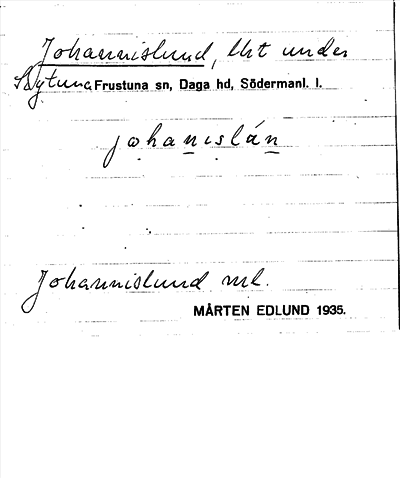 Johannislund, lht under
Frustuna sn, Daga hd, Södermanl. l.
johanislán
Johannislund ml.
MÅRTEN EDLUND 1935.